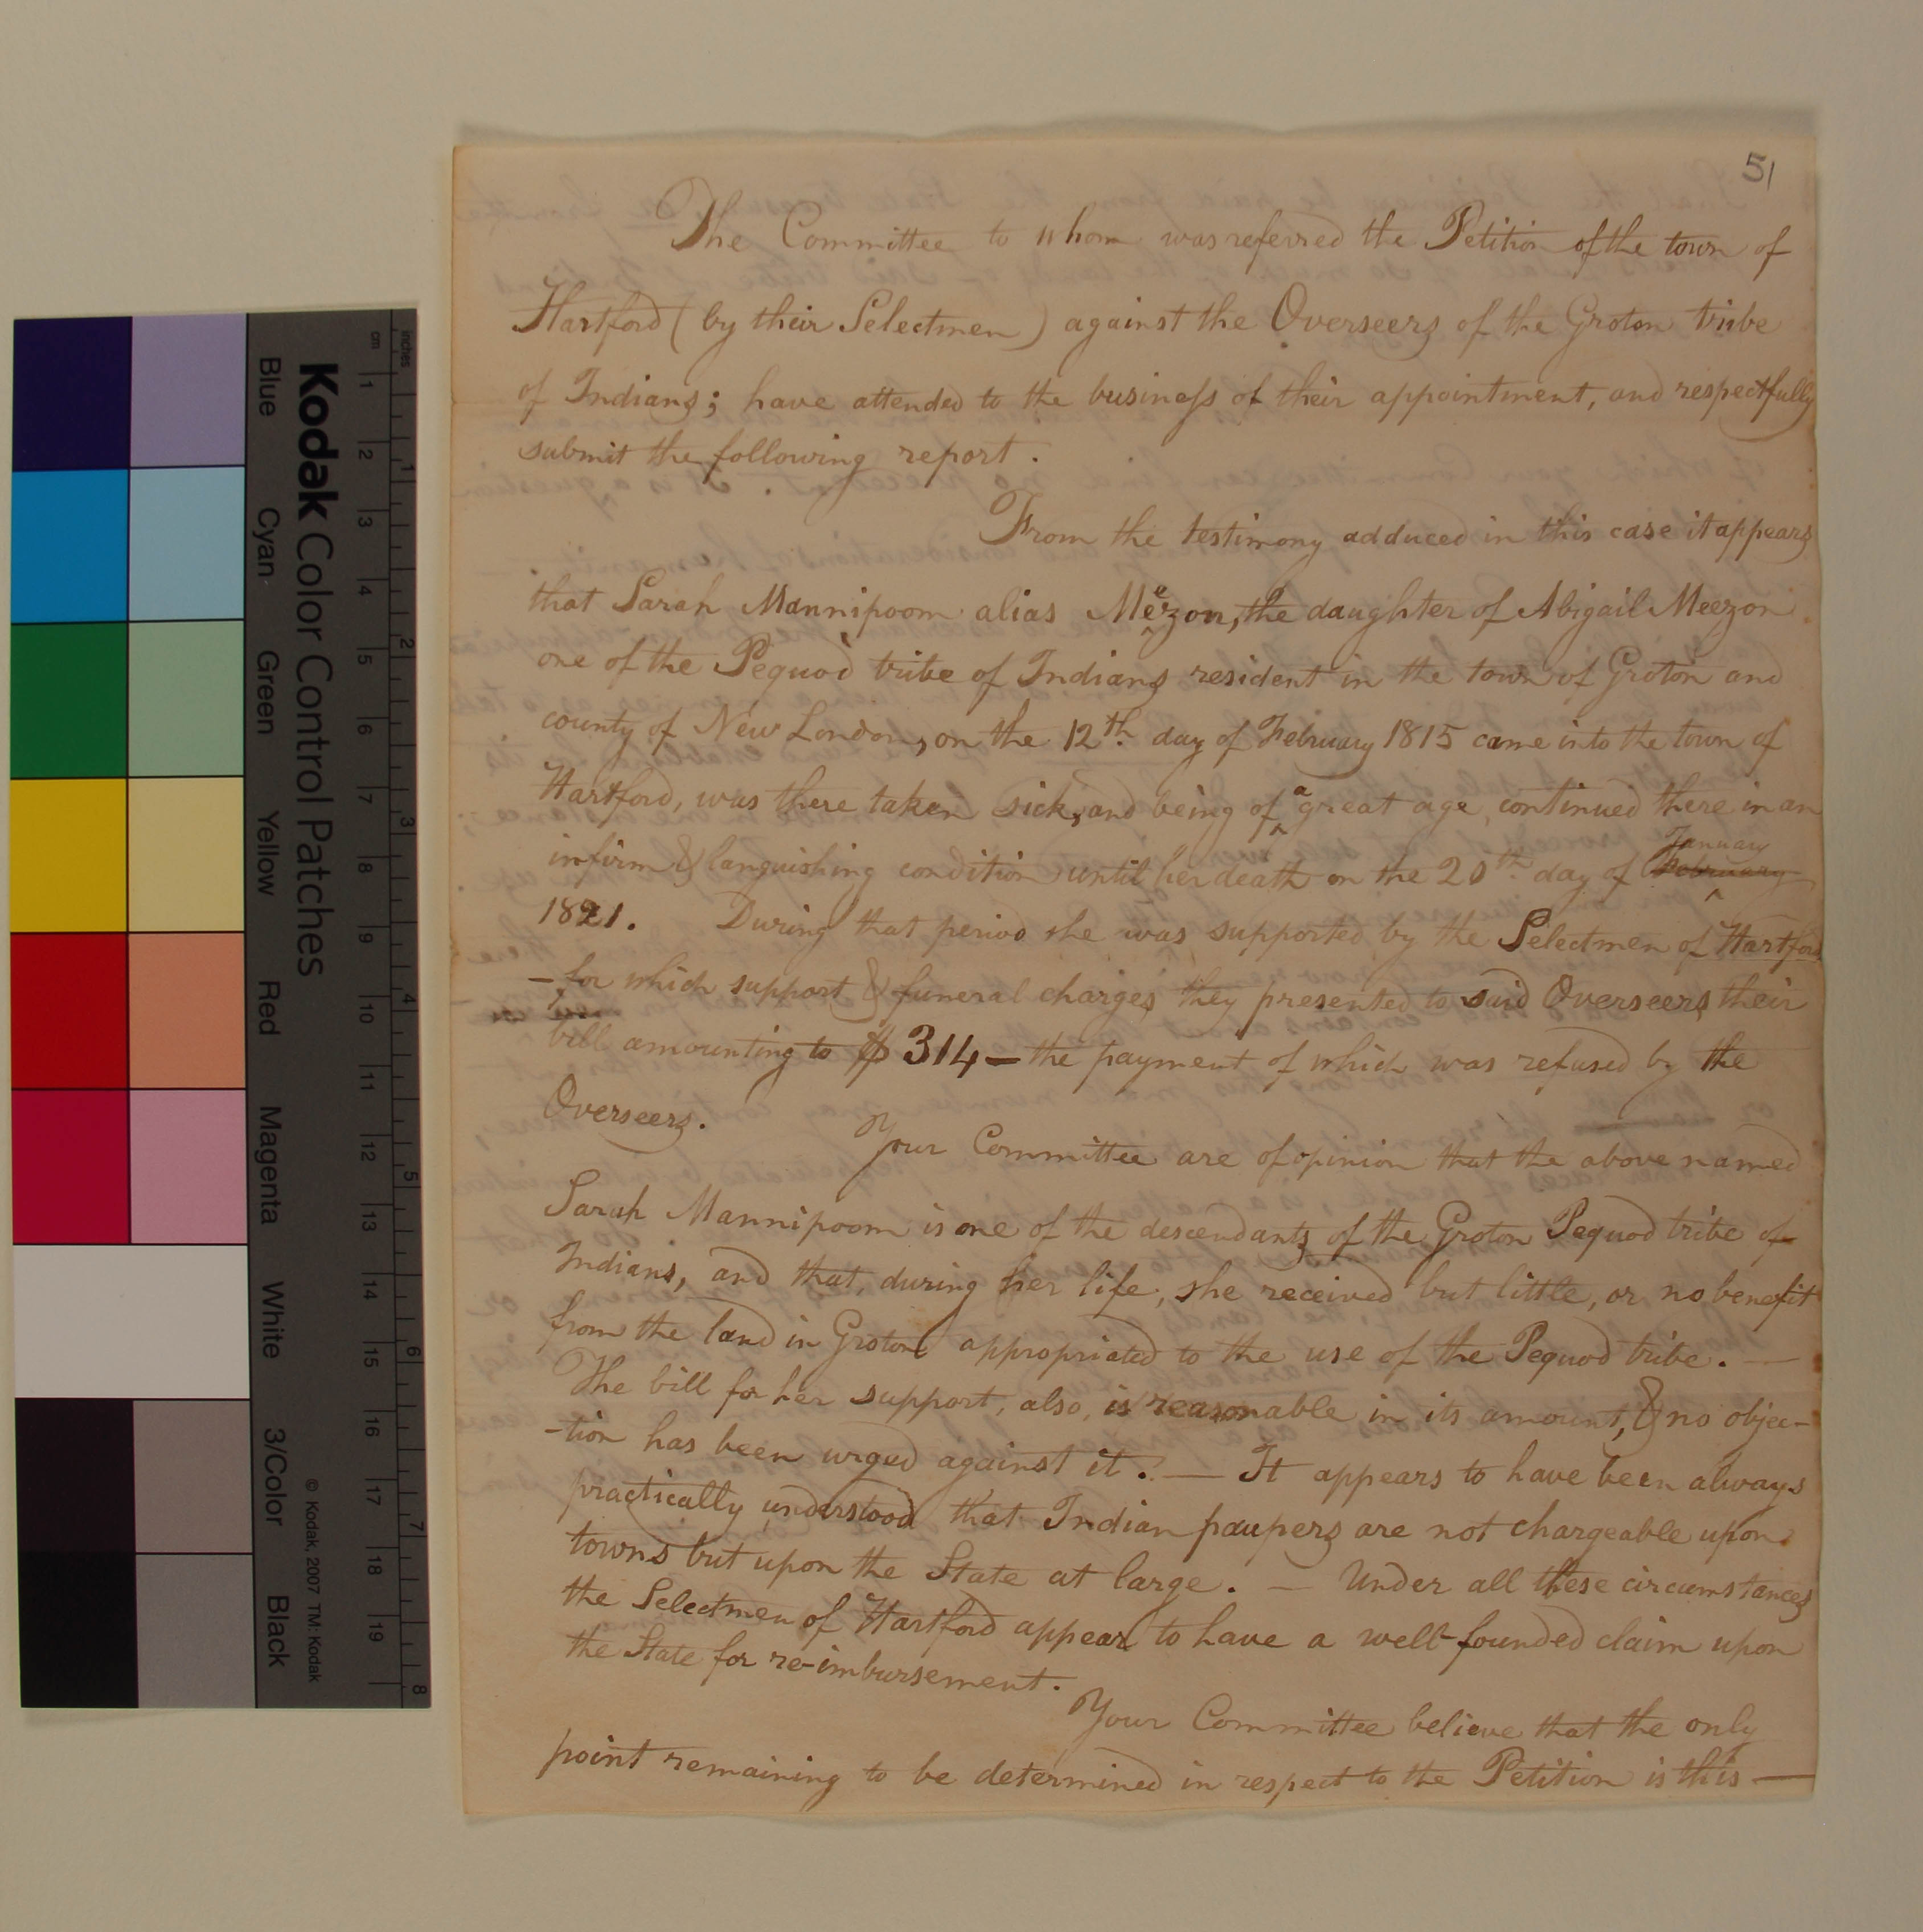 51
The Committee to whom was referred the Petition of the town of
Hartford (by their Selectmen) against the Overseers of the Groton tribe
of Indians; have attended to the business of their appointment, and respectfully
submit the following report.
From the testimony adduced in this case it appears
that Sarah Mannipoom alias Meezon, the daughter of Abigail Meezon
one of the Pequod tribe of Indians resident in the town of Groton and
county of New London, on the 12th. day of February 1815 came into the town of
Hartford, was there taken sick, and being of a great age, continued there in an
infirm & languishing condition until her death on the 20th. day of February January
1821. During that period she was supported by the Selectmen of Hartford
- for which support & funeral charges they presented to said Overseers their
bill amounting to $ 314 — the payment of which was refused by the
Overseers.
Your Committee are of opinion that the above named
Sarah Mannipoom is one of the descendants of the Groton Pequod tribe of
Indians, and that, during her life, she received but little, or no benefit
from the land in Groton appropriated to the use of the Pequod tribe. —
The bill for her support, also, is reasonable in its amount, & no objec-
-tion has been urged against it. — It appears to have been always
practically understood that Indian paupers are not chargeable upon
towns but upon the State at large. — Under all these circumstances
the Selectmen of Hartford appear to have a well-founded claim upon
the State for re-imbursement.
Your Committee believe that the only
point remaining to be determined in respect to the Petition is this —
inches
cm
1
2
3
4
5
6
7
8
9
10
11
12
13
14
15
16
17
18
19
1
2
3
4
5
6
7
8
Kodak Color Control Patches
© Kodak, 2007 TM: Kodak
Blue
Cyan
Green
Yellow
Red
Magenta
White
3/Color
Black